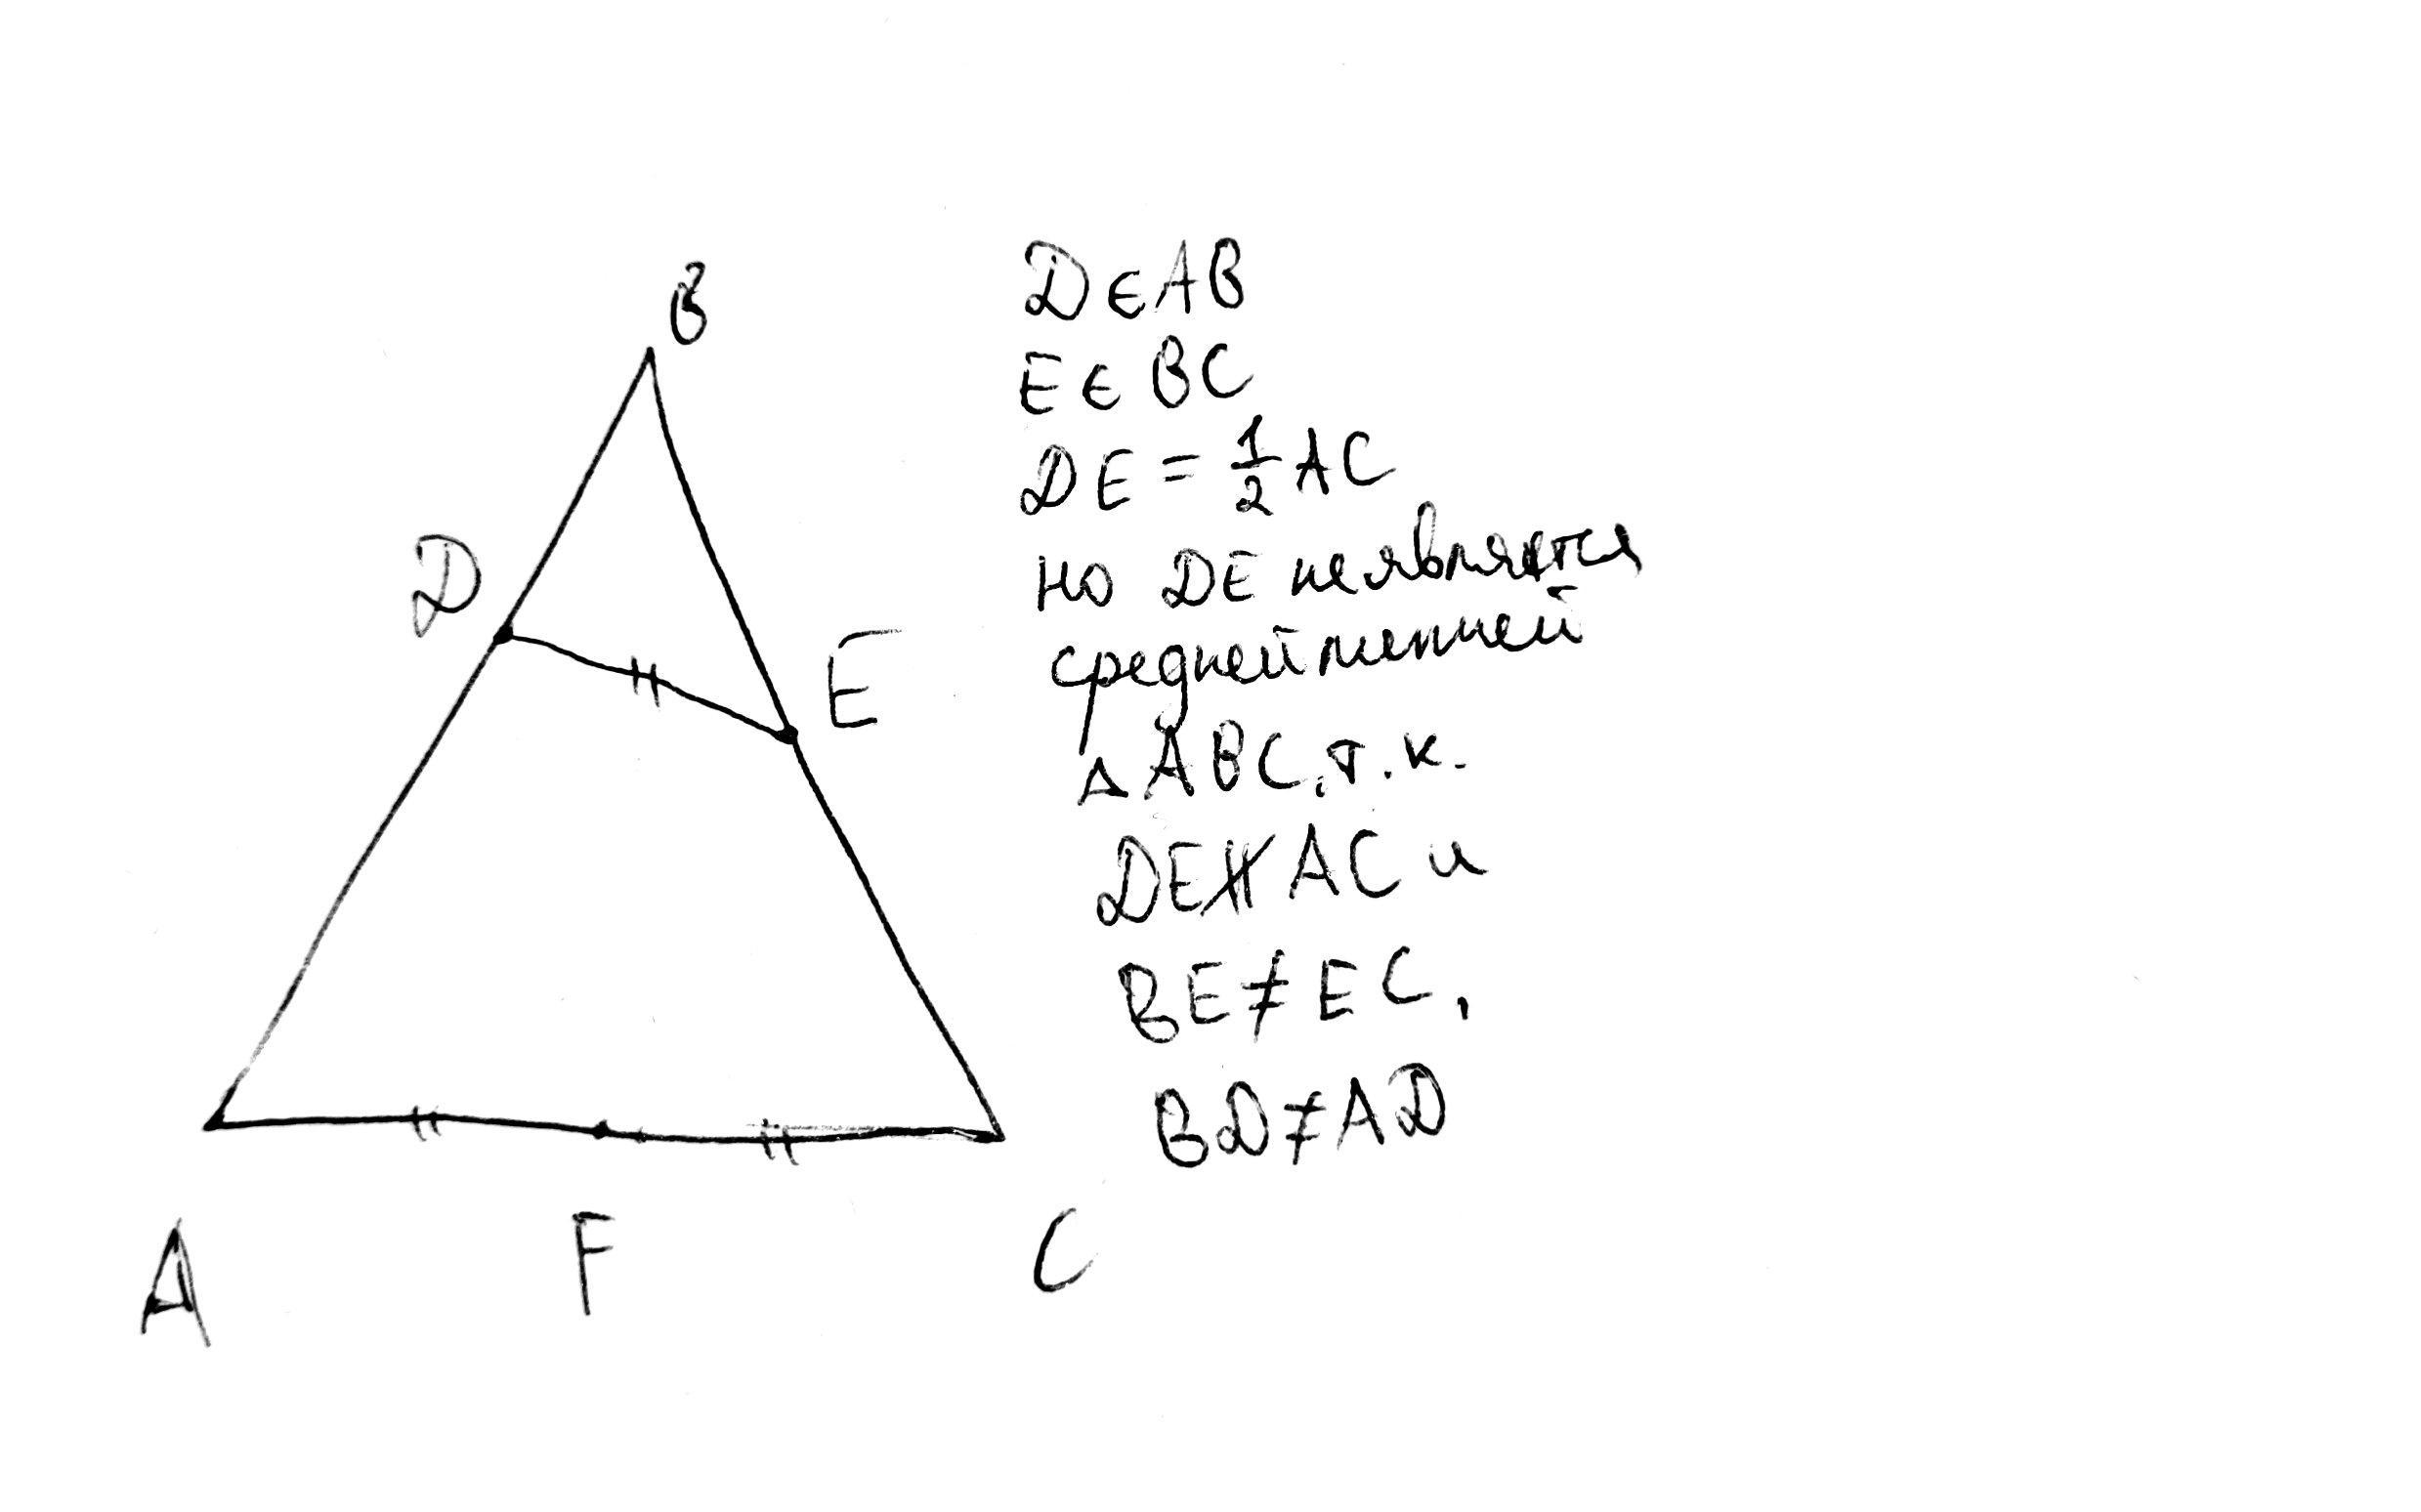 B
D
E
A
F
C
D ∈ AB
E ∈ BC
DE = 1/2 AC
но DE не является
средней линией
△ ABC, т.к.
DE ∦ AC и
BE ≠ EC,
BD ≠ AD